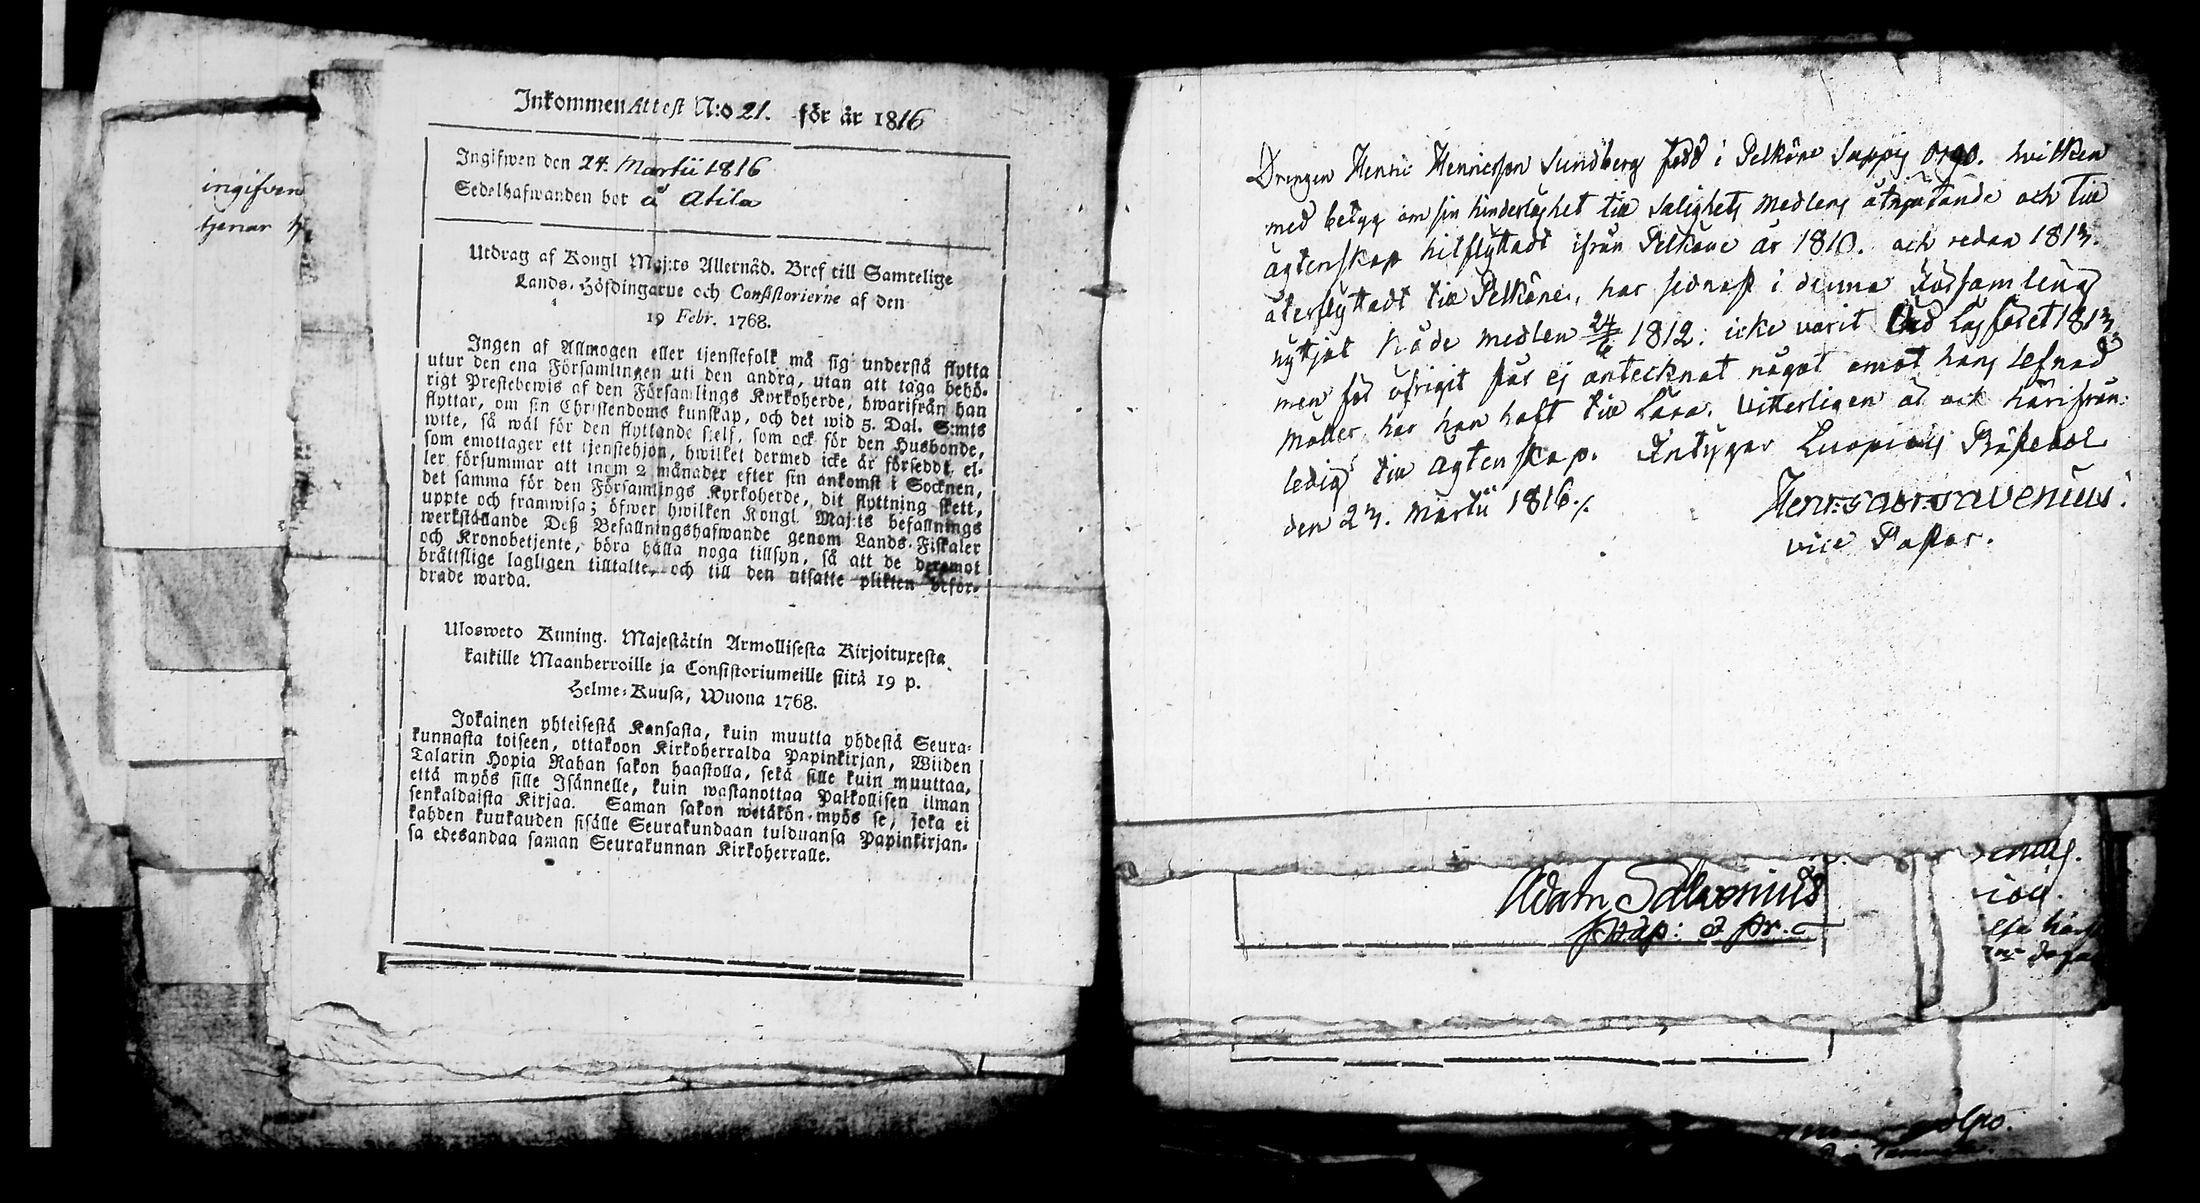 ingifven
tjenar
Inkommen Attest N:o 21. för år 1816
Ingifwen den 24. Martii 1816
Sedelhafwanden bor å Atila
Utdrag af Kongl Maj:ts Allernåd. Bref till Samtelige
Lands-Höfdingarne och Consistorierne af den
19 Febr. 1768.
Ingen af Allmogen eller tjenstefolk må sig understå flytta
utur den ena Församlingen uti den andra, utan att taga behö-
rigt Prestebewis af den Församlings Kyrkoherde, hwarifrån han
flyttar, om sin Christendoms kunskap, och det wid 5. Dal. S:mts
wite, så wäl för den flyttande sielf, som ock för den Husbonde,
som emottager ett tjenstehjon, hwilket dermed icke är försedt, el-
ler försummar att inom 2 månader efter sin ankomst i Socknen,
det samma för den Församlings Kyrkoherde, dit flyttning skett,
uppte och framwisa; öfwer hwilken Kongl. Maj:ts befallnings
werkställande Deß Befallningshafwande genom Lands-Fiskaler
och Kronobetjente, böra hålla noga tillsyn, så att de deremot
bråttslige lagligen tilltalte, och till den utsatte plikten befor-
drade warda.
Ulosweto Kuning. Majestätin Armollisesta Kirjoituxesta
kaikille Maanherroille ja Consistoriumeille siitä 19 p.
Helme-Kuusa, Wuona 1768.
Jokainen yhteisestä Kansasta, kuin muutta yhdestä Seura-
kunnasta toiseen, ottakoon Kirkoherralda Papinkirjan, Wiiden
Talarin Hopia Rahan sakon haastolla, sekä sille kuin muuttaa,
että myös sille Isännelle, kuin wastanottaa Palkollisen ilman
senkaldaista Kirjaa. Saman sakon wetäkön myös se, joka ei
kahden kuukauden sisälle Seurakundaan tulduansa Papinkirjan-
sa edesandaa saman Seurakunnan Kirkoherralle.
Drengen Henric Henricsson Sundberg född i Pelkäne Sappij 1790. hvilken
med betyg om sin hinderlöshet til Salighets medlens åtnjutande och til
ägtenskap hitflyttadt ifrån Pelkäne år 1810. och redan 1813.
återflyttadt til Pelkäne, har sednast i denna Församling
nytjat Nåde medlen 24/6 1812. icke varit vid Läsförhöret 1813.
men för öfrigit står ej antecknat något emot hans lefnad
har han haft til Lära. Vitterligen är ock härifrån
ledig til ägtenskap. Intygar Luopiois Prästebol
den 23. Martii 1816./.
Henr: Gabr: Savenius.
vice Pastor.
Adam Salvenius